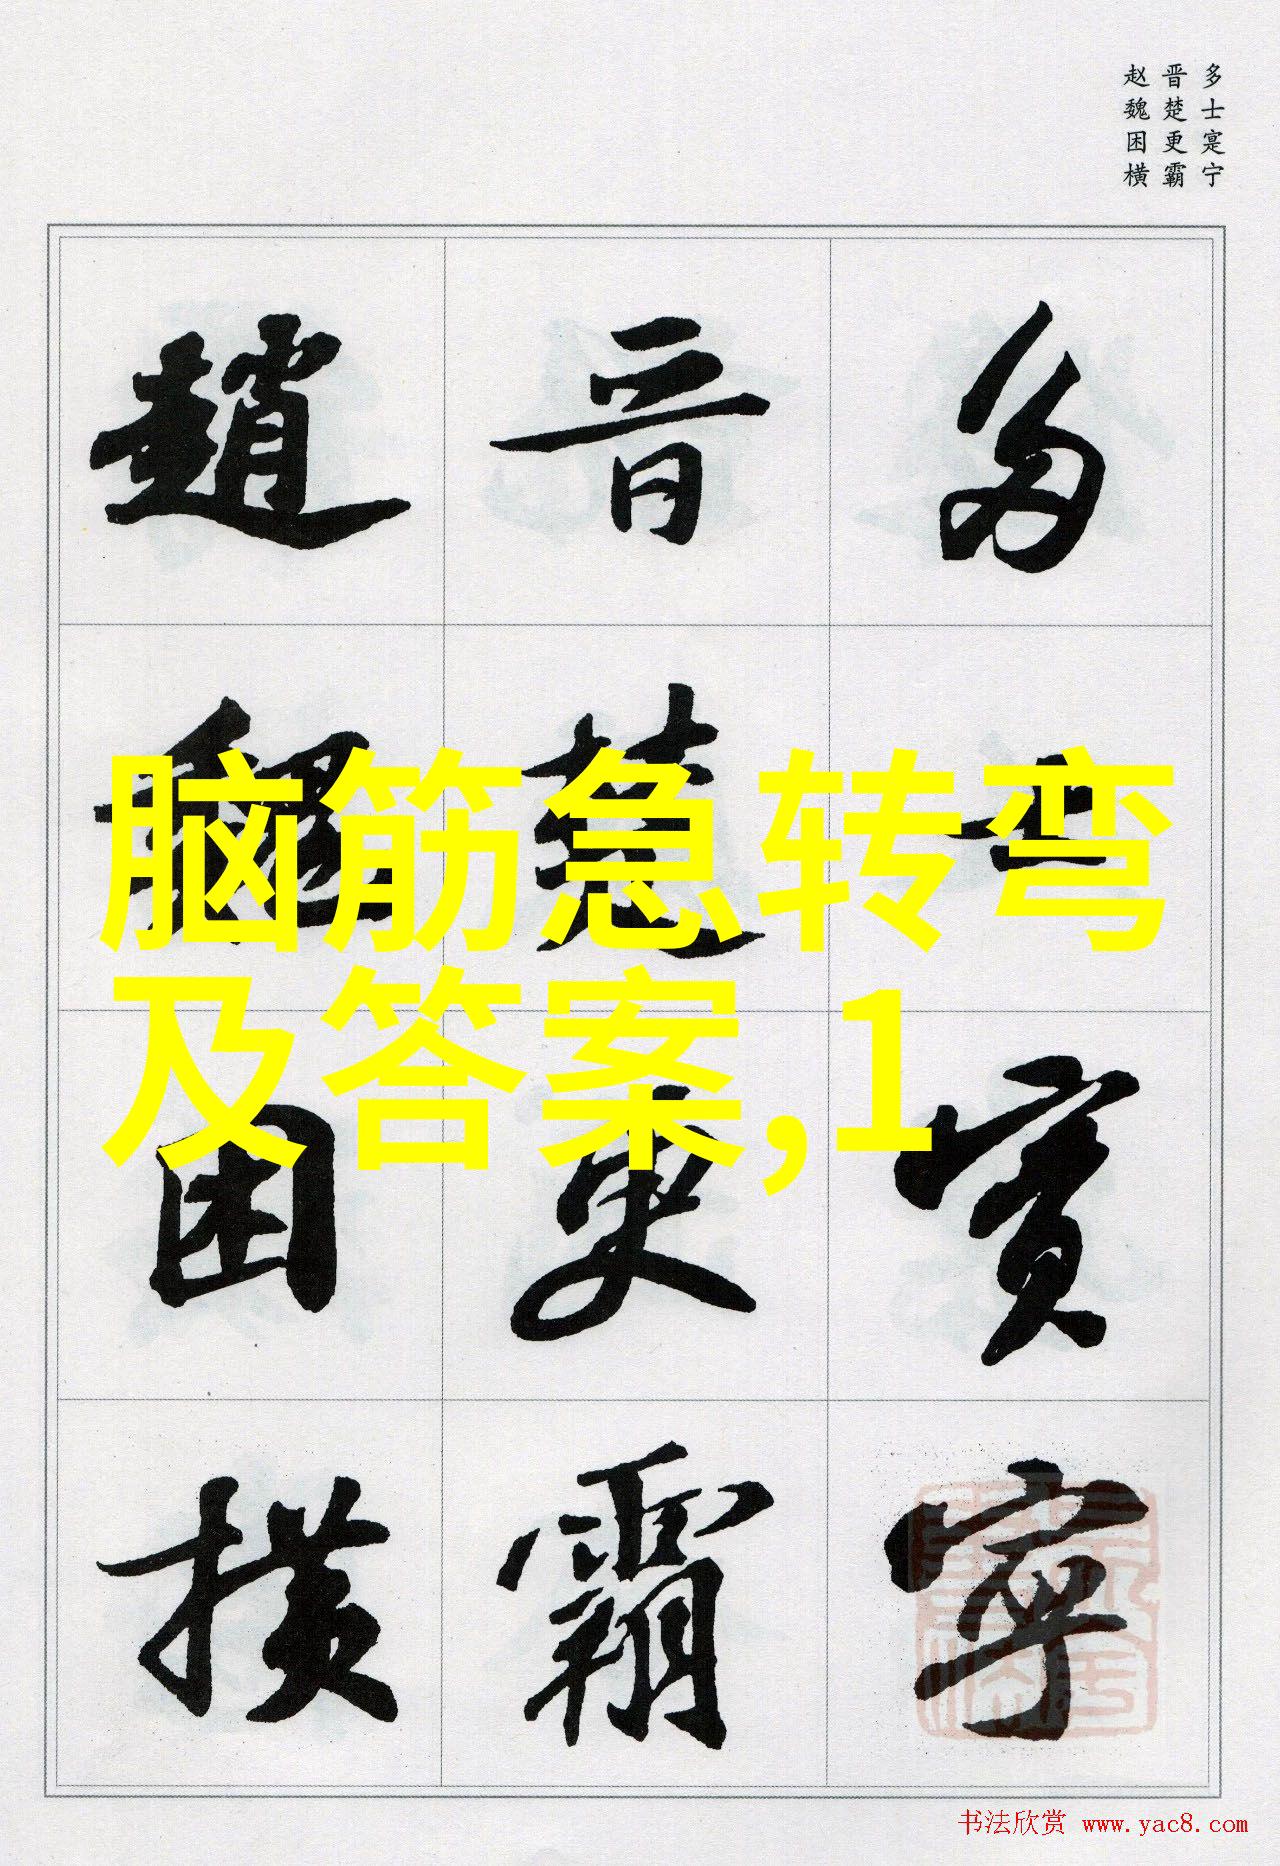 多士寔宁
晋楚更霸
赵魏困横
多士寔寧
晋楚更霸
趙魏困横
脑筋急转弯
及答案,1
书法欣赏 www.yac8.com